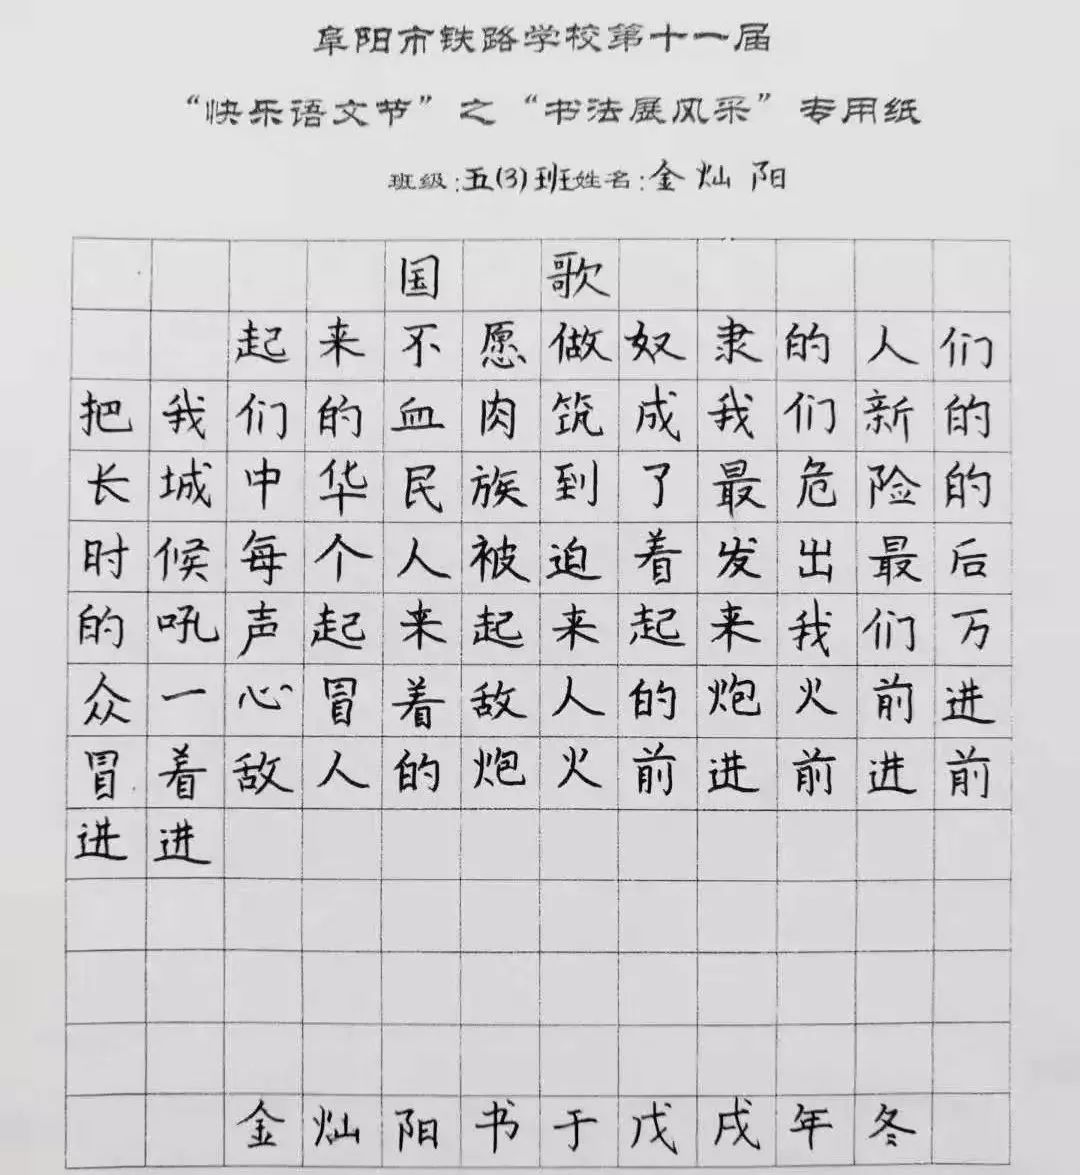 阜阳市铁路学校第十一届
“快乐语文节”之“书法展风采”专用纸
班级:五(3)班姓名:金灿阳
国歌
起来不愿做奴隶的人们
把我们的血肉筑成我们新的
长城中华民族到了最危险的
时候每个人被迫着发出最后
的吼声起来起来起来我们万
众一心冒着敌人的炮火前进
冒着敌人的炮火前进前进前
进进
金灿阳书于戊戌年冬